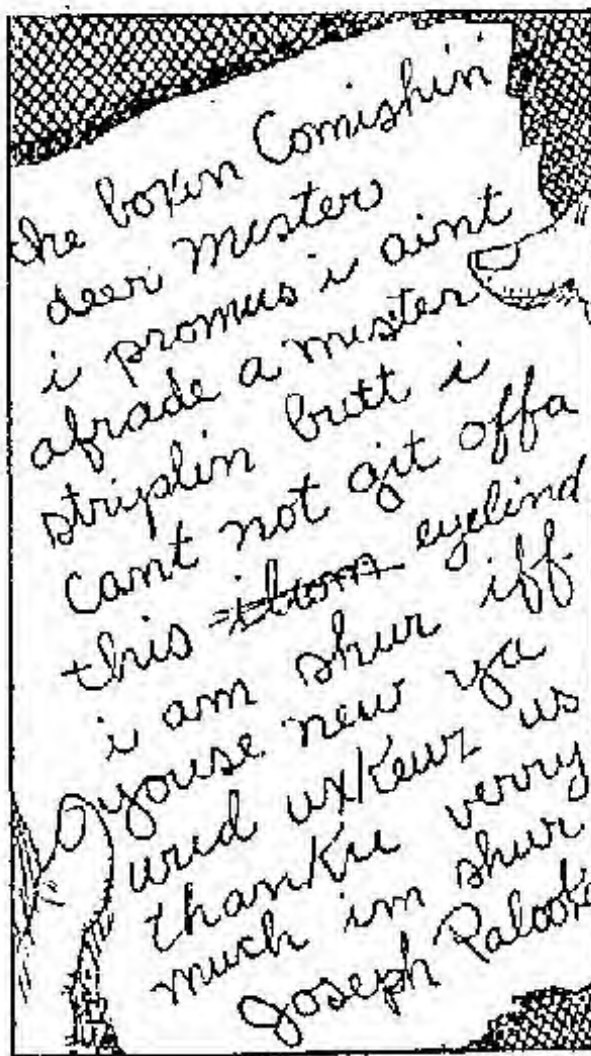 the boxin Comishin
deer mister
i promus i aint
afrade a mister
striplin butt i
cant not git offa
this ilum eyelind
i am shur iff
youse new ya
urid uxkewz us
thanku verry
much im shur
Joseph Palooka